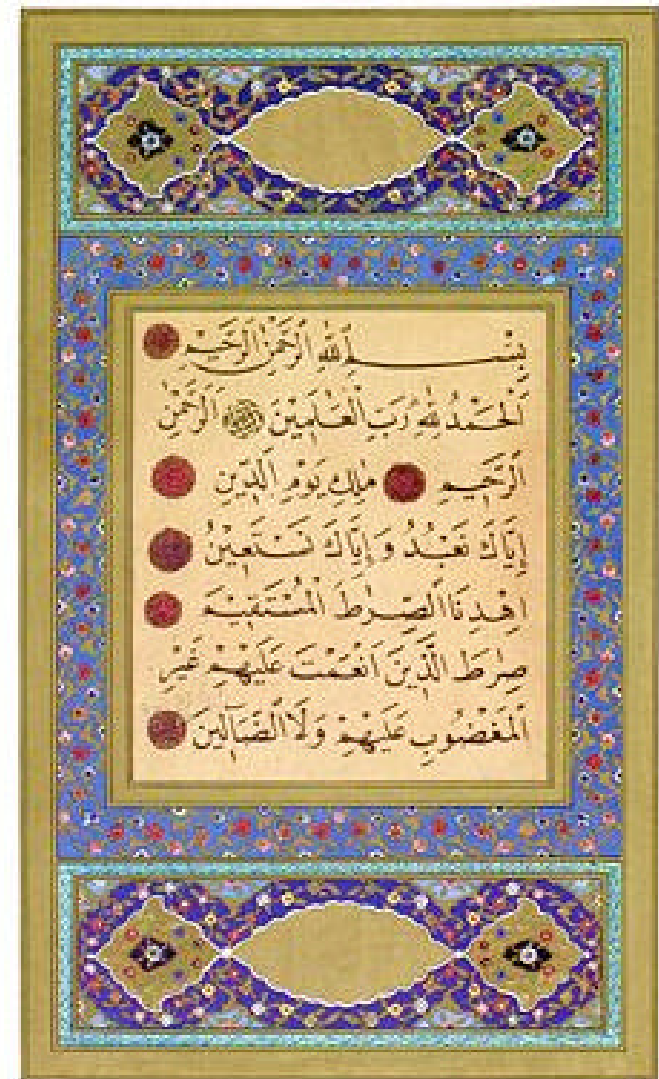 بِسْمِ اللّٰهِ الرَّحْمٰنِ الرَّحِيمِ
اَلْحَمْدُ لِلّٰهِ رَبِّ الْعٰلَمِينَ اَلرَّحْمٰنِ
الرَّحِيمِ مٰلِكِ يَوْمِ الدِّينِ
اِيَّاكَ نَعْبُدُ وَ اِيَّاكَ نَسْتَعِينُ
اِهْدِنَا الصِّرٰطَ الْمُسْتَقِيمَ
صِرٰطَ الَّذِينَ اَنْعَمْتَ عَلَيْهِمْ غَيْرِ
الْمَغْضُوبِ عَلَيْهِمْ وَلَا الضَّٓالِّينَ